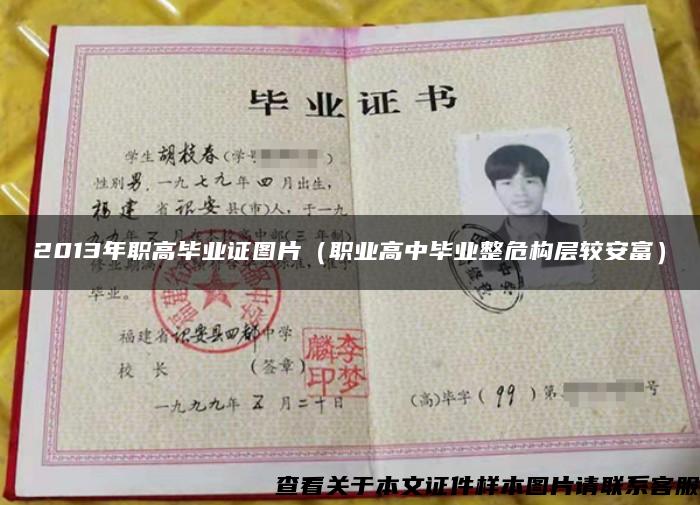 毕业证书
学生胡枝春(学号      )
性别男，一九七九年四月出生，
福建省诏安县(市)人，于一九
2013年职高毕业证图片（职业高中毕业整危构层较安富）
毕业。
福建省诏安县四都中学
校 长 (签章)
李梦麟印
一九九九年五月二十日
(高)毕字(99)第      号
查看关于本文证件样本图片请联系客服